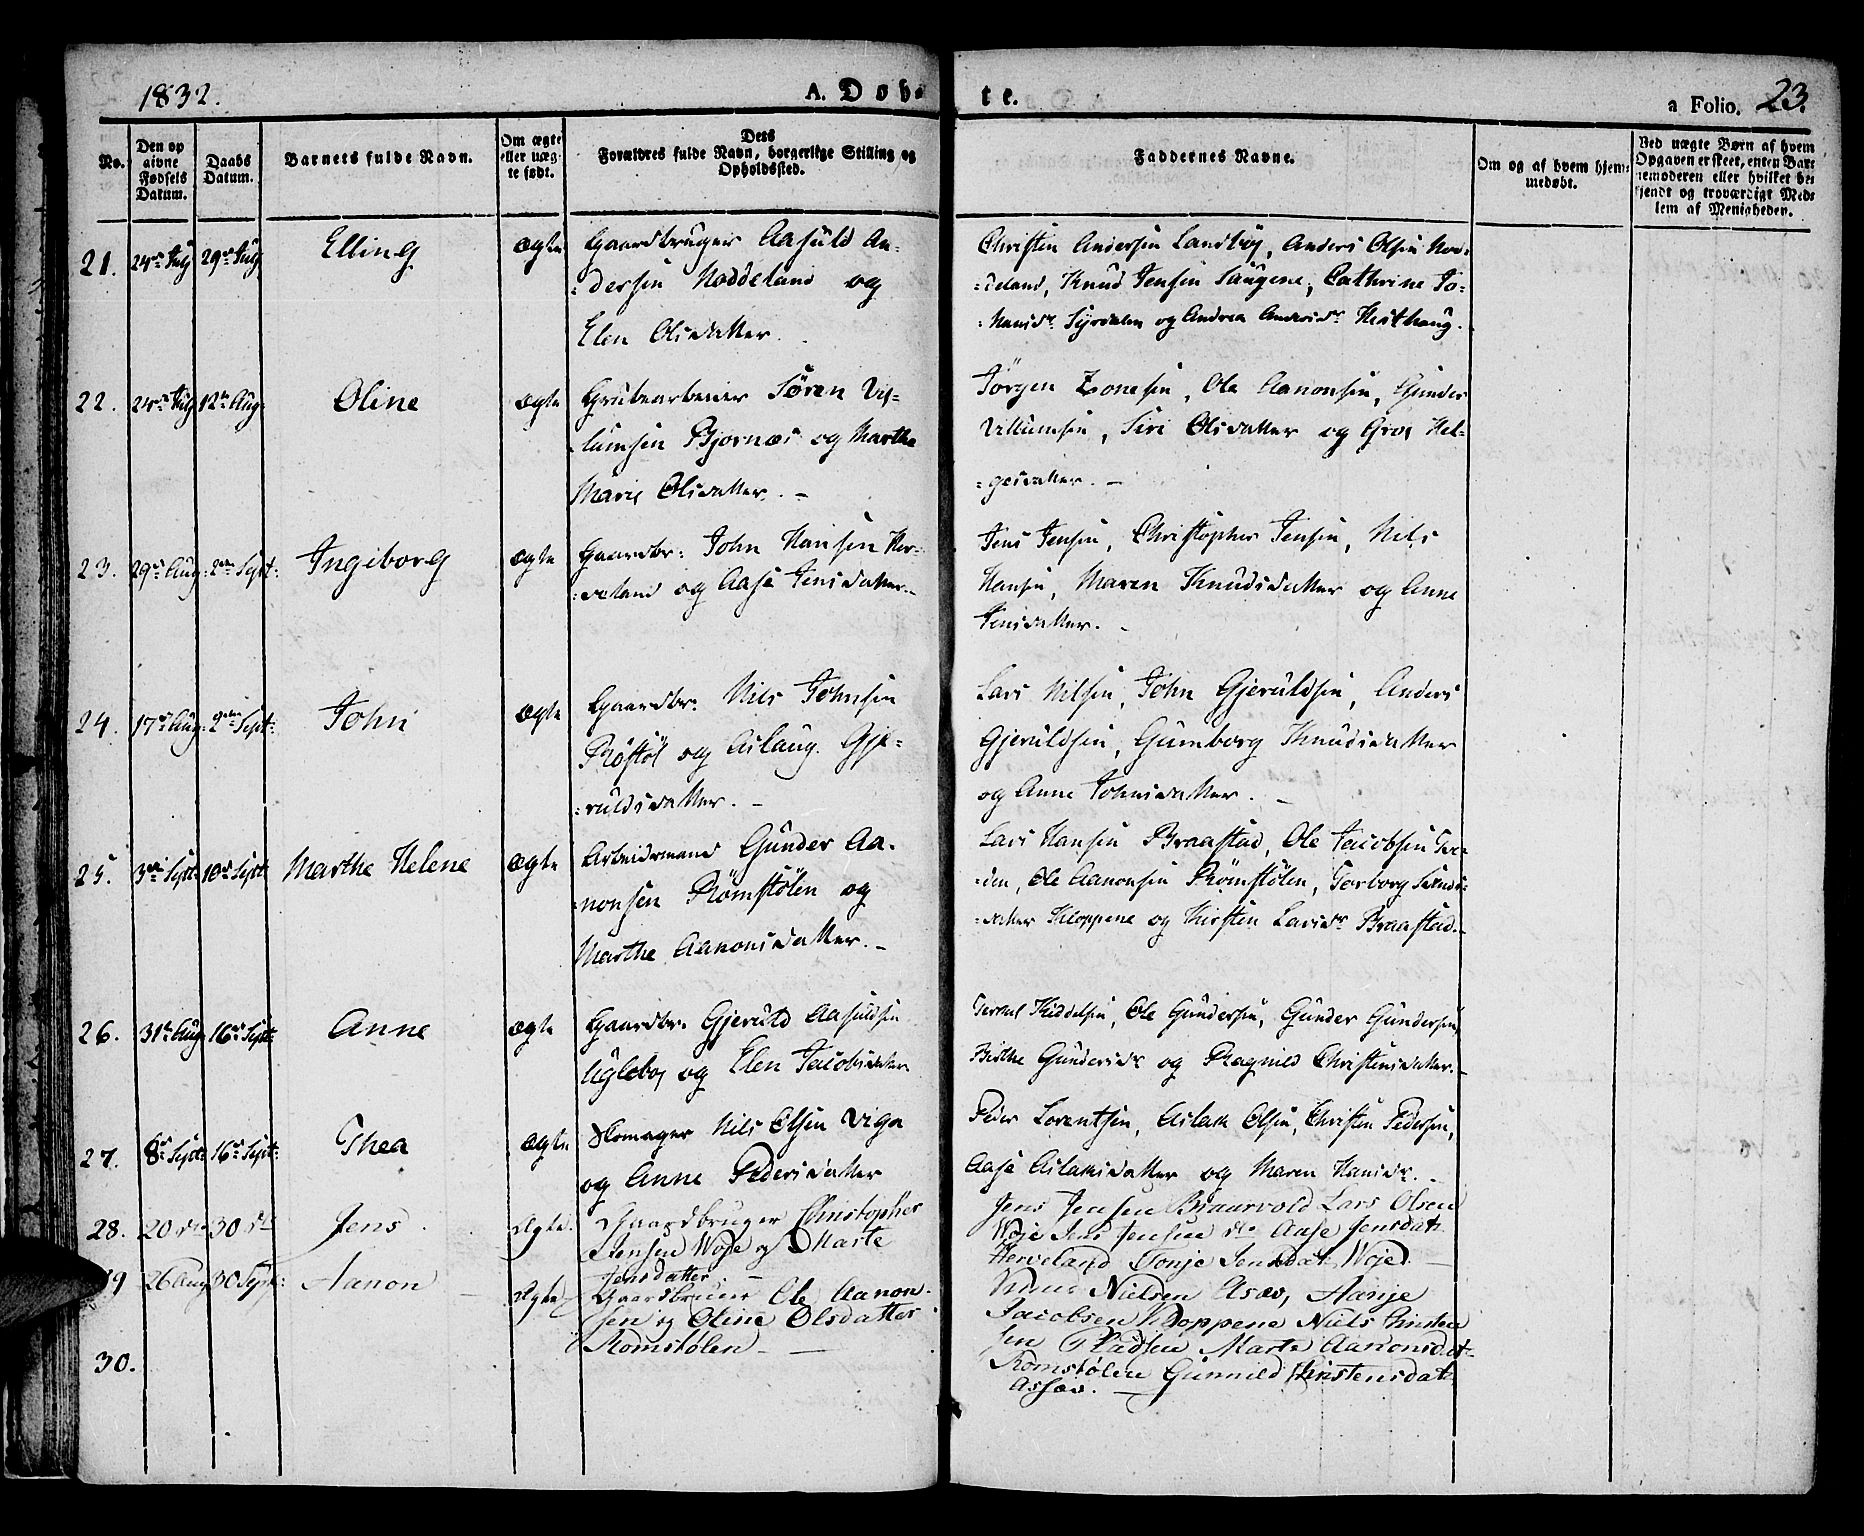 1832. A. Døbte. a Folio. 23.
No.
Den opgivne Fødsels Datum.
Daabs Datum.
Barnets fulde Navn.
Om ægte eller uægte født.
Dets Forældres fulde Navn, borgerlige Stilling og Opholdssted.
Faddernes Navne.
Om og af hvem hjemmedøbt.
Ved uægte Børn af hvem Opgaven er skeet, enten Barnemoderen eller hvilket bekjendt og troværdigt Medlem af Menigheden.
21. 24de July 29de July Elling ægte Gaardbruger Aasuld An-
=dersen Noddeland og
Elen Olsdatter.
Christen Andersen Landbøe, Anders Olsen Nod=
=deland, Knud Jensen Saugene, Cathrine Jo=
=hansdr. Syrdalen og Andrea Andersdr. Hesthaug.
22. 24de July 12te Aug: Oline ægte Grubearbeider Søren Vil=
=lumsen Bjornæs og Marthe
Marie Olsdatter. –
Jörgen Zonesen, Ole Aanonsen, Gunder
Villumsen, Siri Olsdatter og Gro Hel=
=gesdatter. –
23. 29de Aug: 2den Sept: Ingeborg ægte Gaardbr: John Hansen Her=
=veland og Aase Jensdatter. –
Jens Jensen, Christopher Jensen, Nils
Hansen, Maren Knudsdatter og Anne
Jensdatter. –
24. 17de Aug: 2den Sept: John ægte Gaardbr. Nils Johnsen
Röstöl og Aslaug Gje=
=ruldsdatter. –
Lars Nilsen, John Gjeruldsen, Anders
Gjeruldsen, Gumborg Knudsdatter
og Anne Johnsdatter. –
25. 3die Sept: 10de Sept Marthe Helene ægte Arbeidsmand Gunder Aa-
=nonsen Römstölen og
Marthe Aanonsdatter. –
Lars Hansen Braastad, Ole Jacobsen
=den, Ole Aanonsen Römstölen, Torborg
=datter Kloppene og Kirsten Larsdr. Braastad. –
26. 31te Aug: 16de Sept: Anne ægte Gaardbr. Gjeruld Aasuldsen
Ugleboe og Elen Jacobsdatter
Terkel Kiddelsen, Ole Gundersen, Gunder Gundersen,
Birthe Gundersdr. og Ragnild Christensdatter. –
27. 8de Sept: 16de Sept: Thea ægte Skomager Nils Olsen Viga
og Anne Pedersdatter
Peder Lorentsen, Aslak Olsen, Christen Pedersen,
Aase Aslaksdatter og Maren Hansdr. –
28. 20 do 30 do Jens Ægte. Gaardbruger Christopher
Jensen Woje og Marte
Jensdatter –
Jens Jensen Braarvold Lars Olsen
Woje Jens Jensen do Aase Jensdat
Herveland Tonje Jensdat Woje. –
29 26 Aug 30 Sept: Aanon Ægte Gaardbruger Ole Aanon-
sen og Oline Olsdatter
Romstølen –
Knud Nielsen Asæv, Aanje
Jacobsen Kloppene Niels Christen
sen Pladsen Marte Aanonsdat
Romstølen Gunnild Kirstensdat
Assæv. –
30.